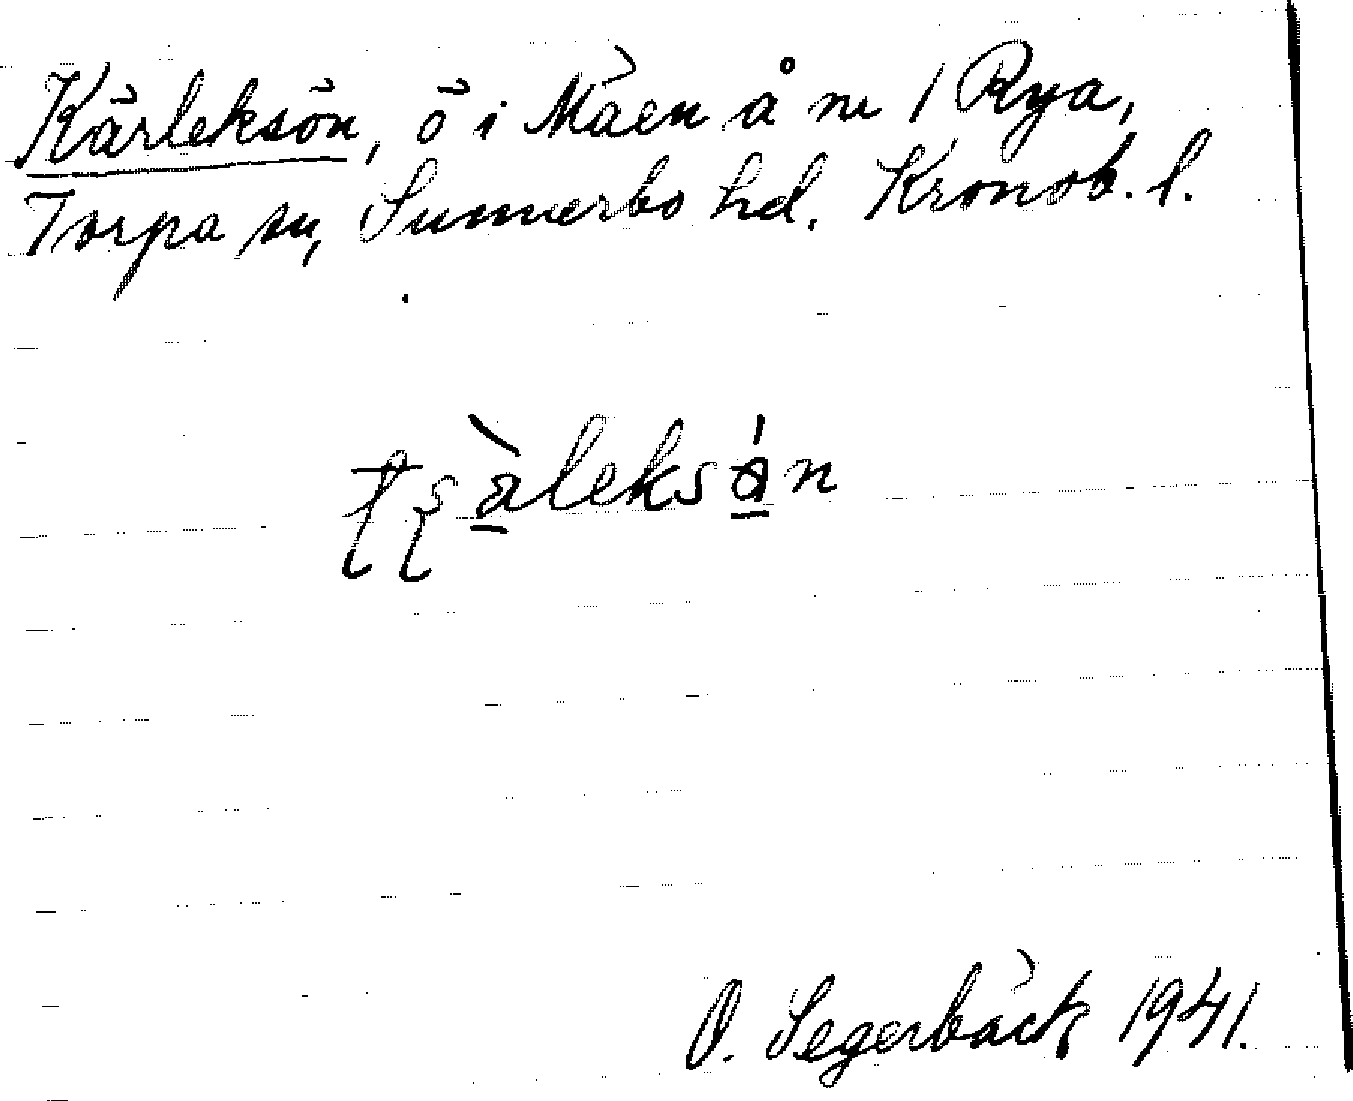 Kärleksön, ö i Mäen å nr 1 Rya,
Torpa sn, Sunnerbo hd. Kronob. l.
O. Segerbäck 1941.